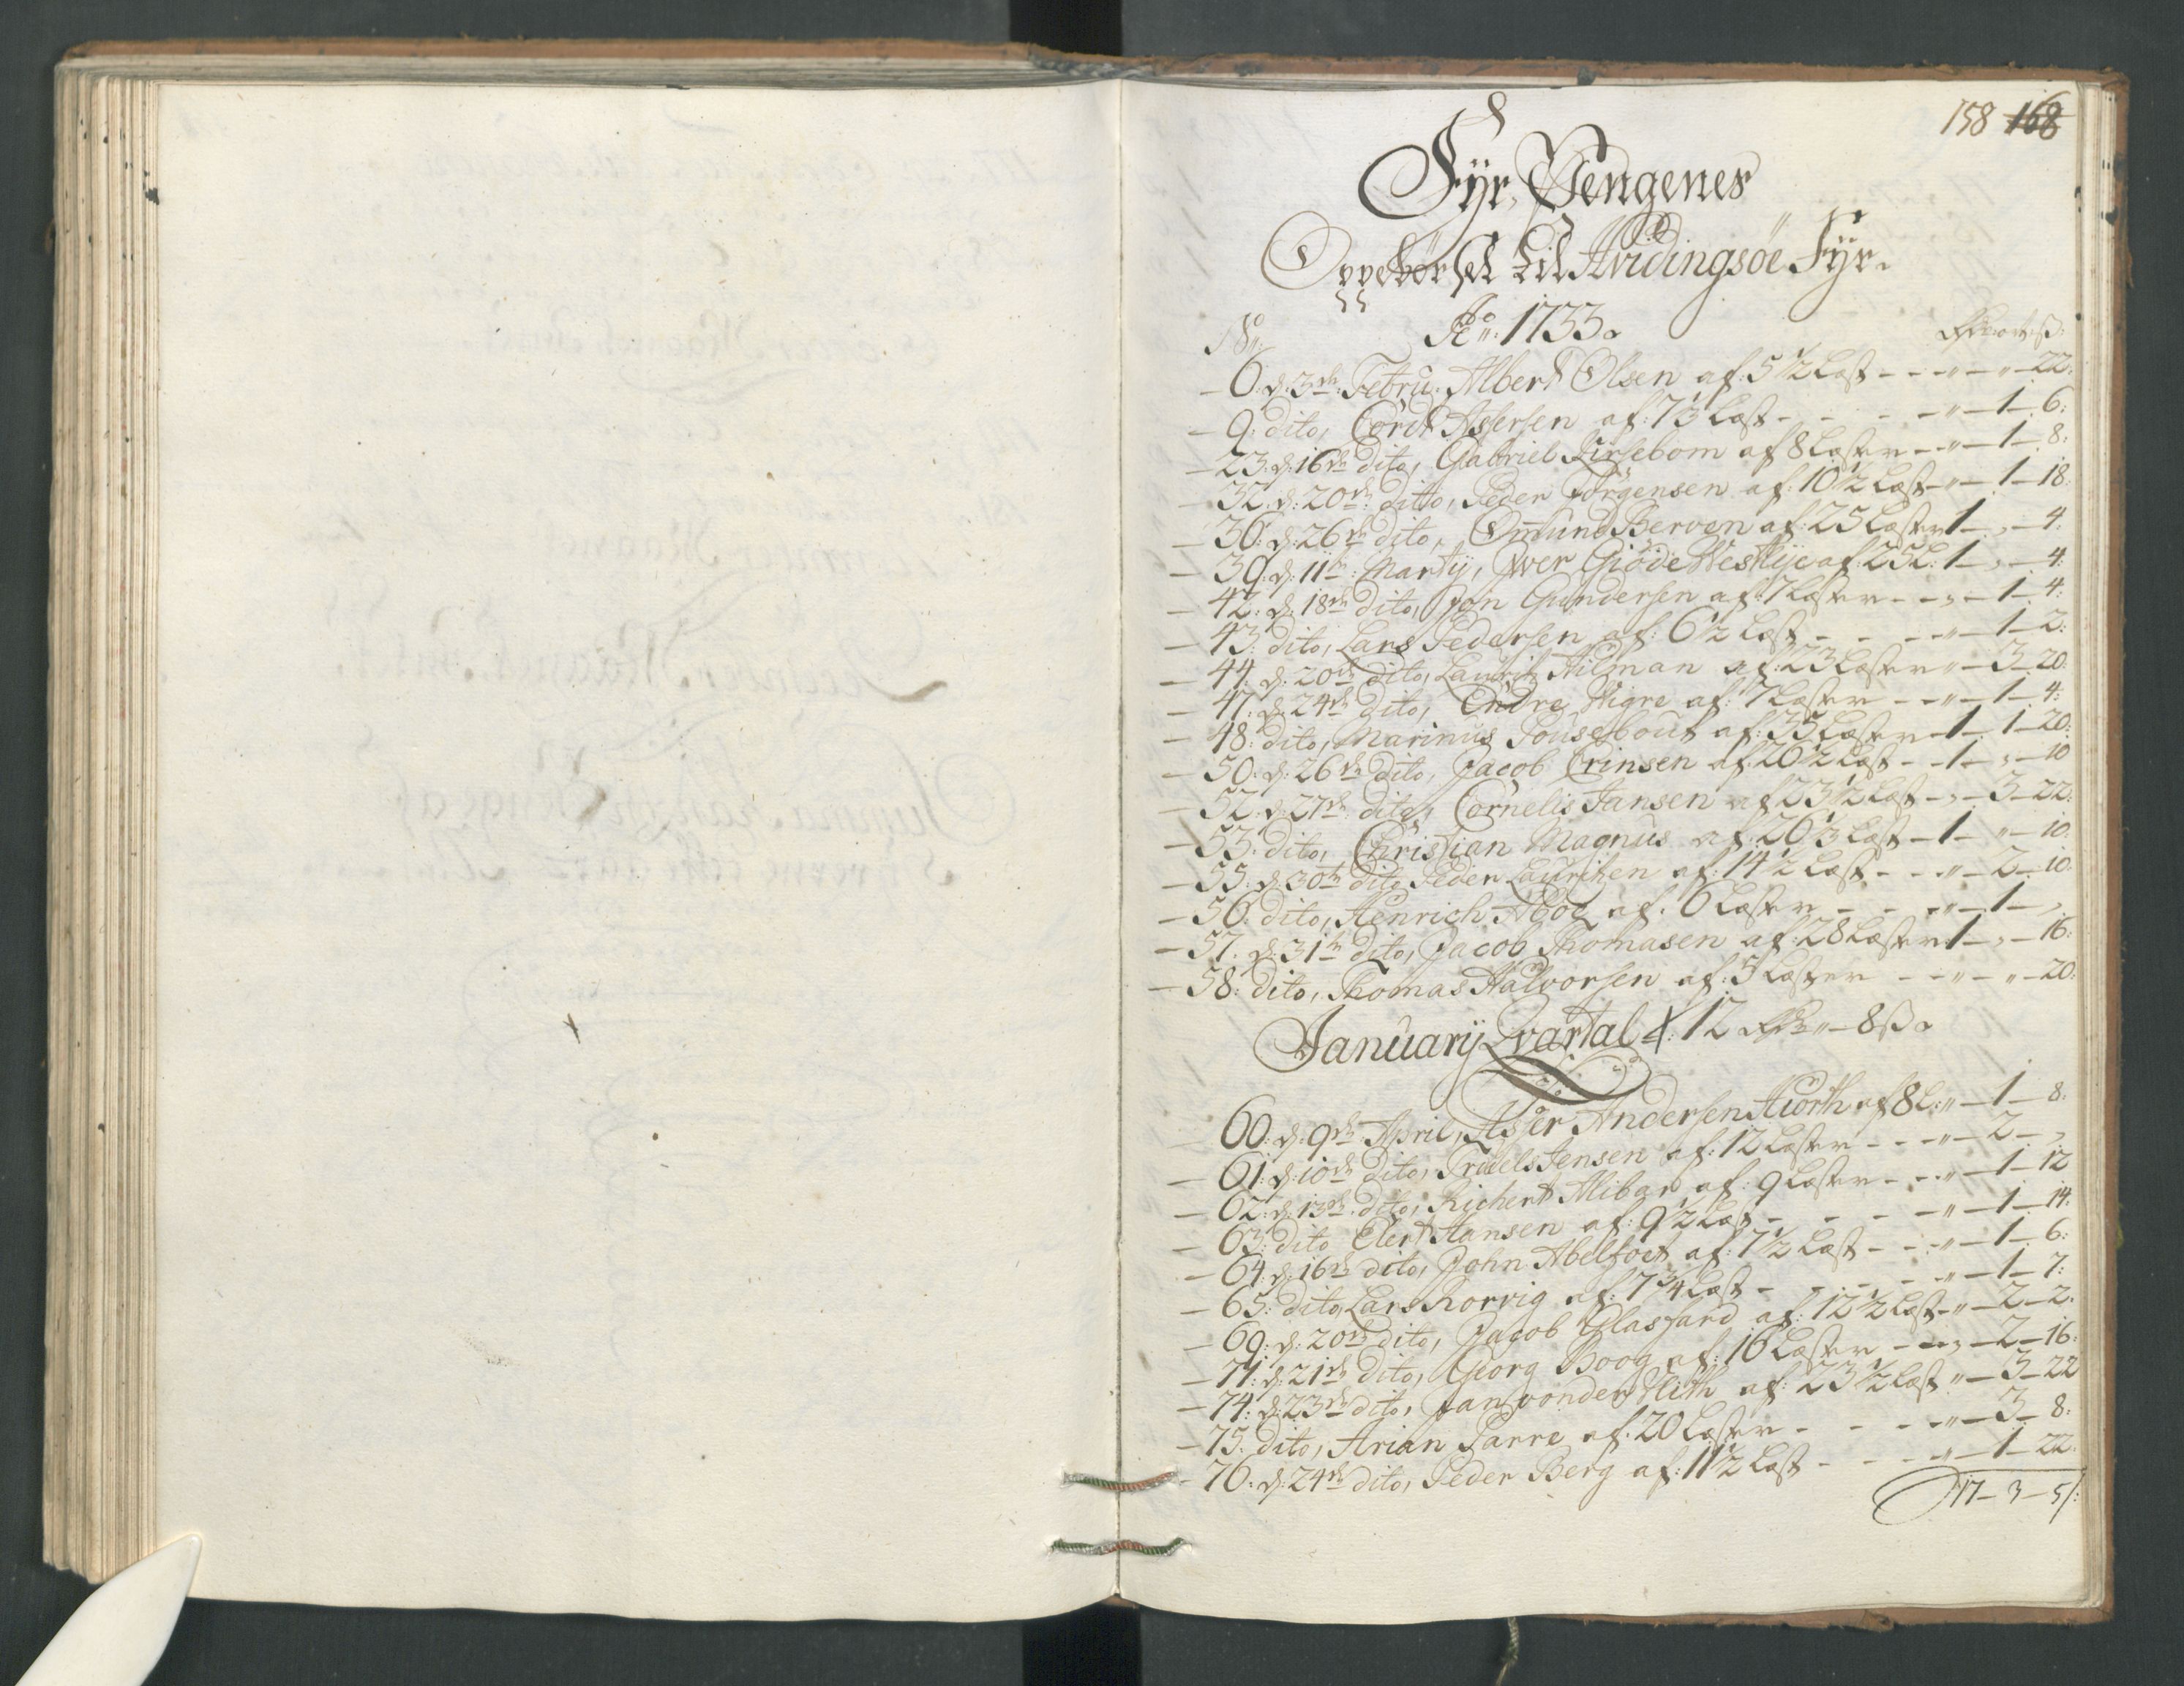 158 168
Fÿr, Pengenes
Oppebörsel til Hvidingsöe Fÿr.
Aō: 1733.
No: Rdr ort ß:
6: d: 3de: Febru: Albert Olsen af: 5 1/2 Læst - - - " - " - 22:
9: dito, Cordt Assersen af: 7 1/3 Læst - - - - " - 1 - 6:
23: d: 16de dito, Gabriel Kirsebom af 8 Læster - - " - 1 - 8:
32: d: 20de: ditto, Peder Jörgensen af: 10 1/2 Læst - " - 1 - 18:
36: d: 26de dito, Omund Berven af: 25 Læster 1 - , - 4:
39: d: 11te: Martÿ, Iver Giöde Westlÿe af: 25 L: 1 - , - 4:
42: d: 18de dito, Jon Gundersen af: 7 Læster - - , - 1 - 4:
43: dito, Lars Pedersen af: 6 1/2 Læst - - - - " - 1 - 2:
44: d: 20de dito, Lauritz Hilman af: 23 Læster " - 3 - 20:
47: d: 24de dito, Endre Wigre af: 7 Læster - - " - 1 - 4:
48: dito, Marinus Pousebout af: 35 Læster - 1 - 1 - 20:
50: d: 26de dito, Jacob Crinsen af: 26 1/2 Læst - - 1 - , - 10
52: d: 27de: dito, Cornelis Jansen af 23 1/2 Læst - , - 3 - 22:
53: dito, Christian Magnus af: 26 1/3 Læst - 1 - " - 10:
55: d: 30te dito Peder Lauritzen af: 14 1/2 Læst - - - " - 2 - 10:
56: dito, Henrich Aboe af: 6 Læster - - - " - 1 - ,
57: d: 31te dito, Jacob Thomasen af: 28 Læster 1 - , - 16:
58: dito, Thomas Halvorsen af: 5 Læster - - " - " - 20:
Januarÿ Qvartal 12 Rdr " - 8 ß.
60: d: 9de April, Asser Andersen Hiorth af 8 L: " - 1 - 8:
61: d: 10de dito, Troels Jensen af: 12 Læster - - - " - 2 - ,
62: d: 13de: dito, Richert Milbar af: 9 Læster - - - " - 1 - 12
63: dito Elert Hansen af: 9 1/2 Læst - - - - " - 1 - 14:
64: d: 16de dito, John Abelfoet af: 7 1/2 Læst - - - " - 1 - 6:
65: dito, Lars Korvig af: 7 3/4 Læst - - - - - " - 1 - 7:
69: d: 20de dito, Jacob Glasfard af: 12 1/2 Læst - " - 2 - 2:
71: d: 21de dito, Georg Boog af: 16 Læster - - , - 2 - 16:
74: d: 23de dito, Jan vonder Hith af: 23 1/2 Læst " - 3 - 22
75: dito, Arian Parre af: 20 Læster - - - - " - 3 - 8:
76: d: 24de dito, Peder Berg af: 11 1/2 Læst - - - " - 1 - 22:
17 - 3 - 5/: